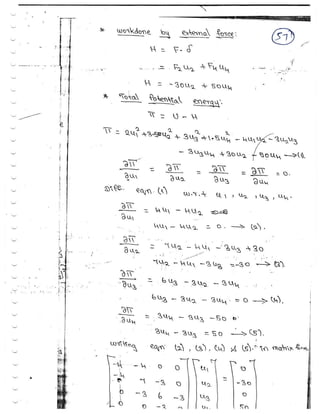 * workdone by external force:
57
H = F·δ
= F₂u₂ + F₄u₄
H = -30u₂ + 50u₄
* Total Potential energy:
π = U - H
π = 2u₁² + 3.5u₂² + 3u₃² + 1.5u₄² - 4u₁u₂ - 3u₂u₃
- 3u₃u₄ + 30u₂ - 50u₄ → (1)
∂π/∂u₁ = ∂π/∂u₂ = ∂π/∂u₃ = ∂π/∂u₄ = 0.
Diff. eqn. (1) w.r.t u₁, u₂, u₃, u₄.
∂π/∂u₁ = 4u₁ - 4u₂
4u₁ - 4u₂ = 0. → (2).
∂π/∂u₂ = 7u₂ - 4u₁ - 3u₃ + 30
7u₂ - 4u₁ - 3u₃ = -30 → (3)
∂π/∂u₃ = 6u₃ - 3u₂ - 3u₄
6u₃ - 3u₂ - 3u₄ = 0 → (4).
∂π/∂u₄ = 3u₄ - 3u₃ - 50
3u₄ - 3u₃ = 50 → (5).
writing eqn. (2), (3), (4) & (5). in matrix form
-4 0 0 u₁ 0
-4 7 -3 0 u₂ = -30
0 -3 6 -3 u₃ 0
0 0 -3 u₄ 50